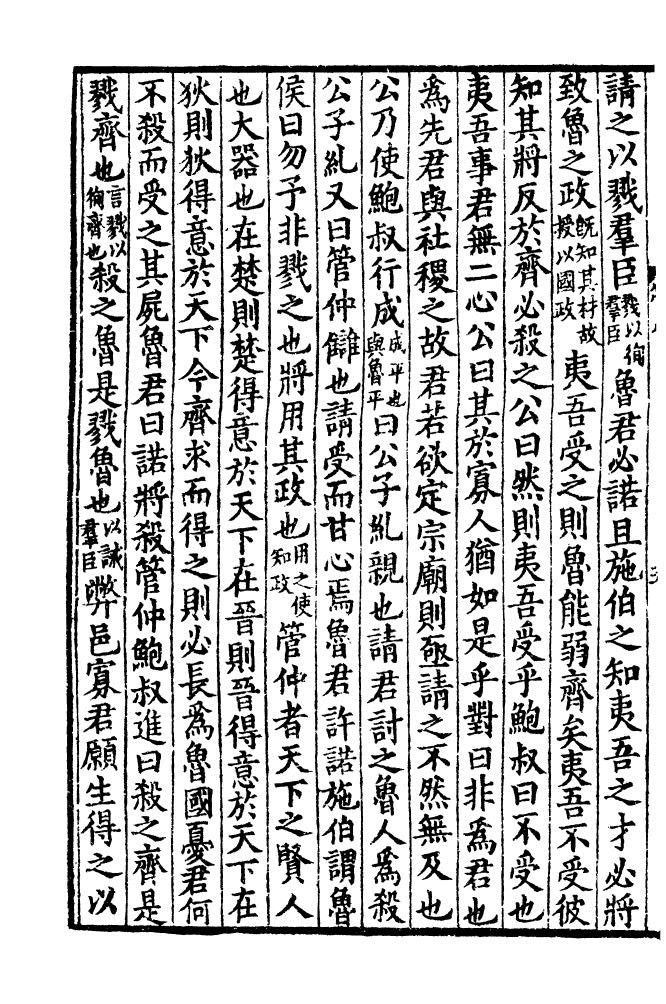 請之以戮羣臣戮以徇羣臣魯君必諾且施伯之知夷吾之才必將
致魯之政既知其材故授以國政夷吾受之則魯能弱齊矣夷吾不受彼
知其將反於齊必殺之公曰然則夷吾受乎鮑叔曰不受也
夷吾事君無二心公曰其於寡人猶如是乎對曰非爲君也
爲先君與社稷之故君若欲定宗廟則亟請之不然無及也
公乃使鮑叔行成成平也與魯平曰公子糺親也請君討之魯人爲殺
公子糺又曰管仲讎也請受而甘心焉魯君許諾施伯謂魯
侯曰勿予非戮之也將用其政也用之使知政管仲者天下之賢人
也大器也在楚則楚得意於天下在晉則晉得意於天下在
狄則狄得意於天下今齊求而得之則必長爲魯國憂君何
不殺而受之其屍魯君曰諾將殺管仲鮑叔進曰殺之齊是
戮齊也言戮以徇齊也殺之魯是戮魯也以誡羣臣弊邑寡君願生得之以